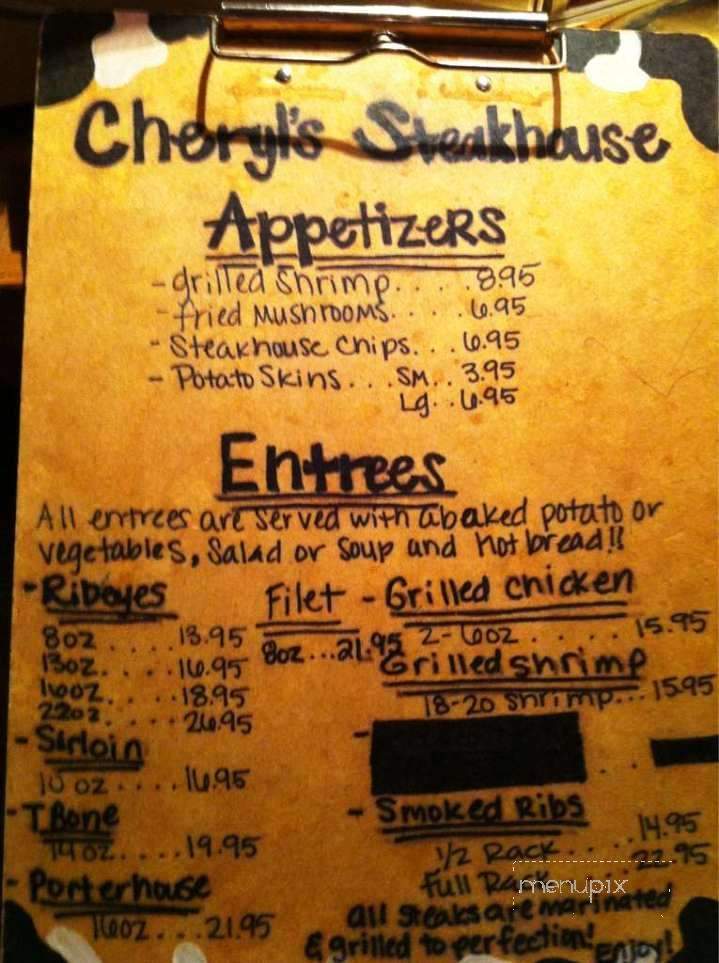 Cheryl's Steakhouse
Appetizers
- grilled Shrimp. . . . . 8.95
- fried Mushrooms. . . . . 6.95
- Steakhouse Chips. . . 6.95
- Potato Skins . . . SM. . 3.95
Lg. . 6.95
Entrees
All entrees are served with a baked potato or
vegetables, Salad or Soup and hot bread!!
- Ribeyes
8oz . . . . 13.95
13oz. . . . 16.95
16oz. . . . 18.95
22oz. . . . 26.95
- Sirloin
10 oz . . . . 16.95
- T Bone
14oz. . . . 19.95
- Porterhouse
16oz . . . 21.95
Filet
8oz...21.95
- Grilled Chicken
2-6oz . . . . . 15.95
Grilled Shrimp
18-20 shrimp... 15.95
- Smoked Ribs
1/2 Rack . . . . . 14.95
full Rack 22.95
all steaks are marinated
& grilled to perfection! Enjoy!
menupix